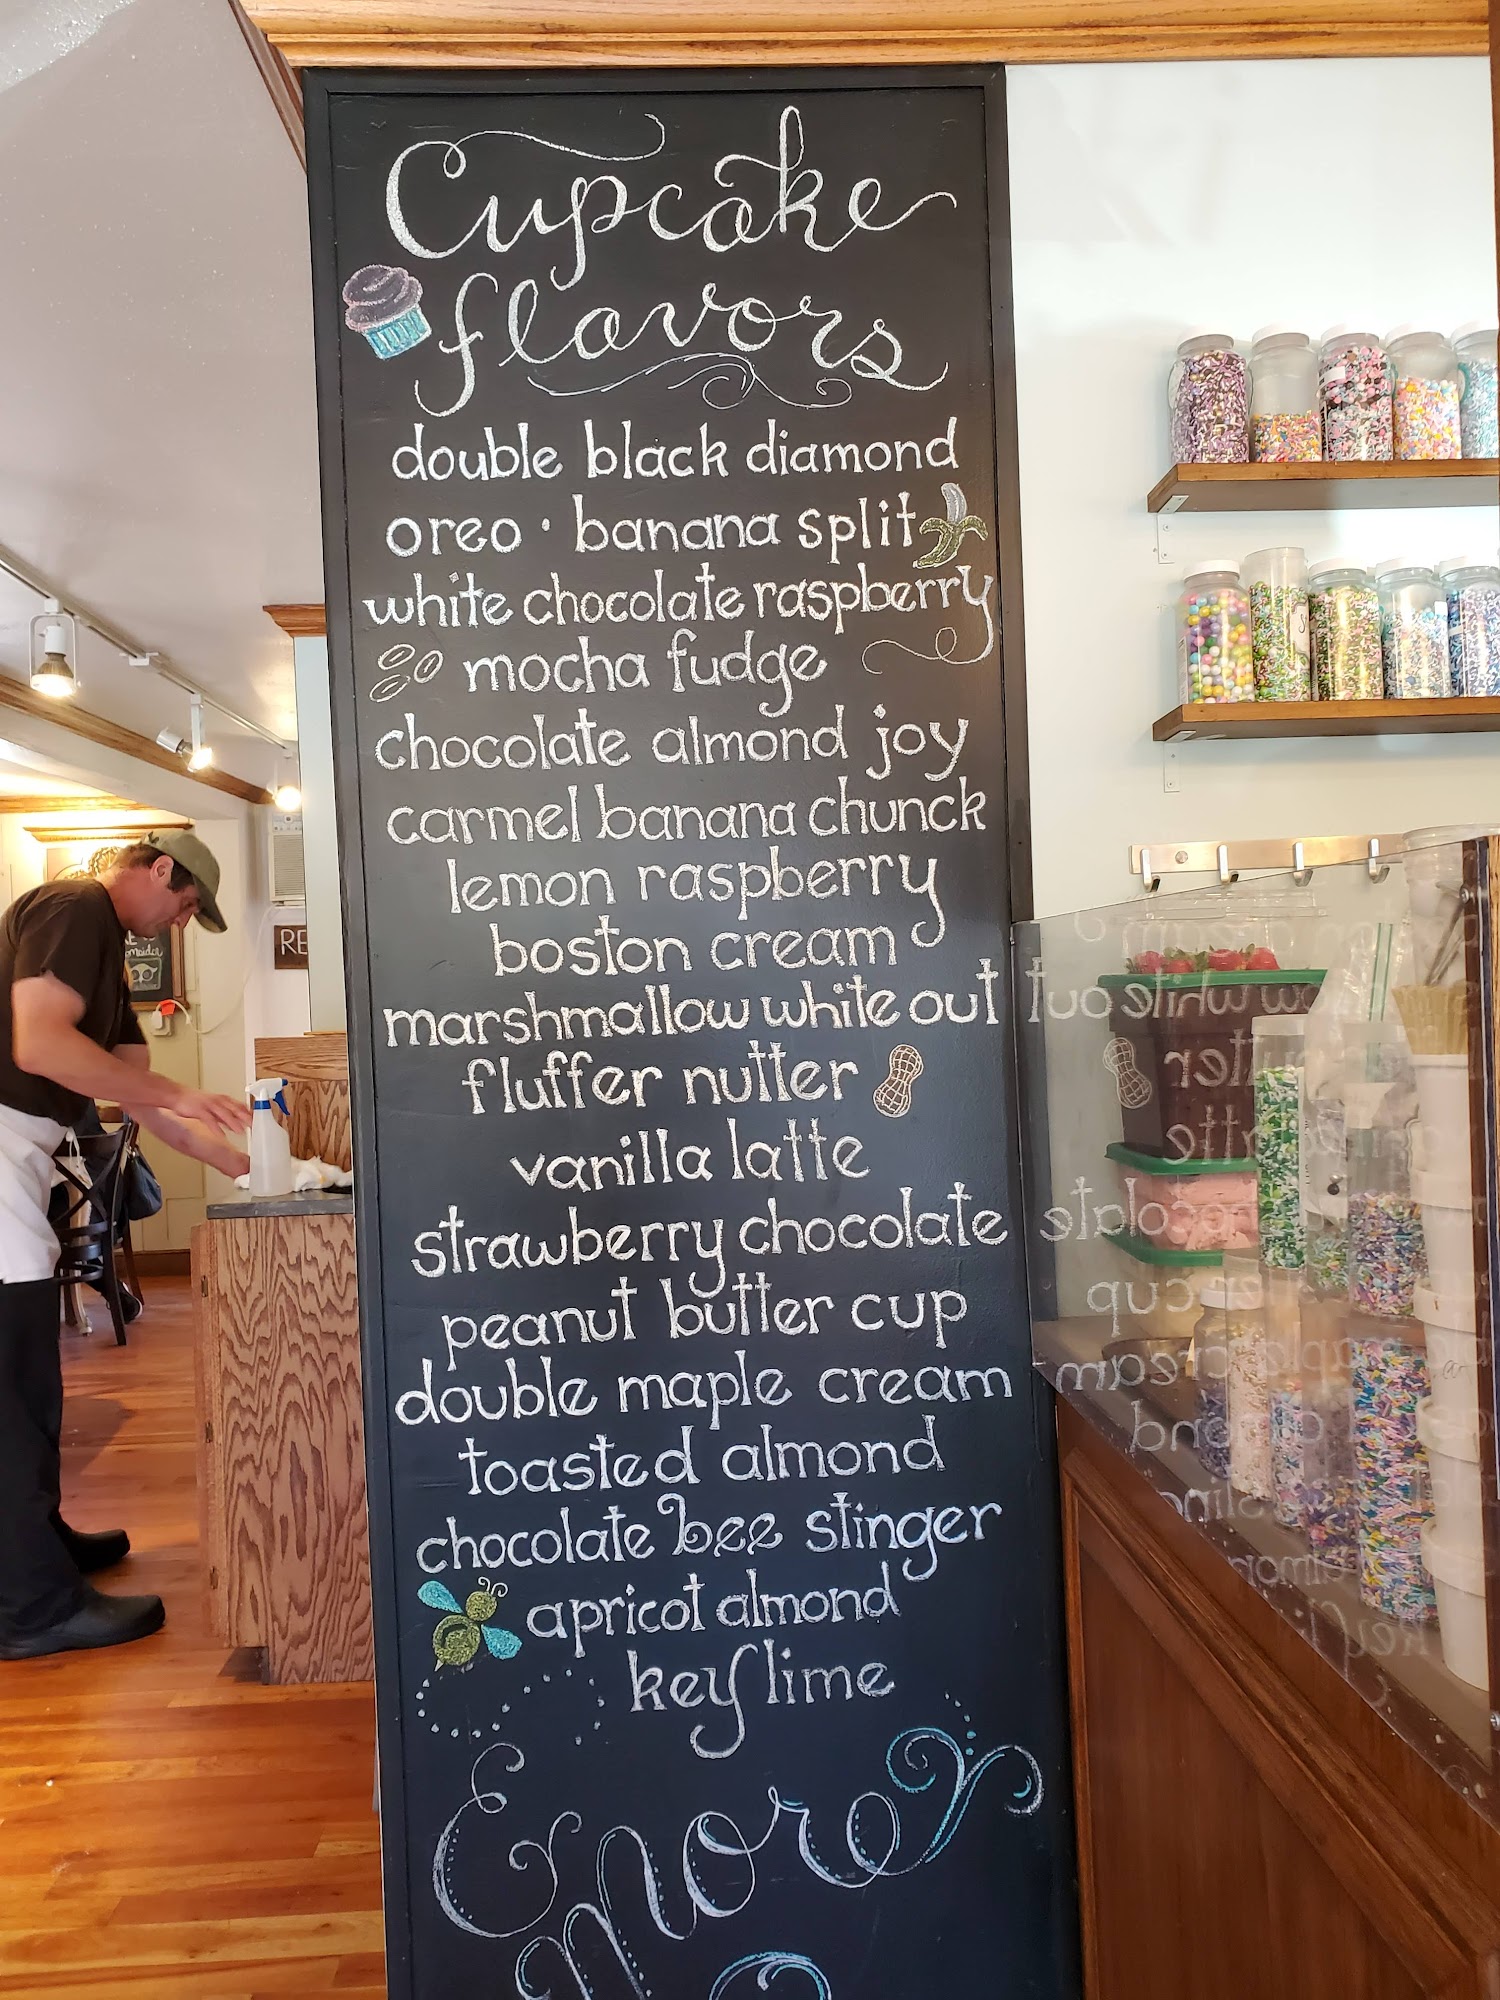 Cupcake
flavors
double black diamond
oreo · banana split
white chocolate raspberry
mocha fudge
chocolate almond joy
carmel banana chunck
lemon raspberry
boston cream
marshmallow white out
fluffer nutter
vanilla latte
strawberry chocolate
peanut butter cup
double maple cream
toasted almond
chocolate bee stinger
apricot almond
key lime
& more
RE